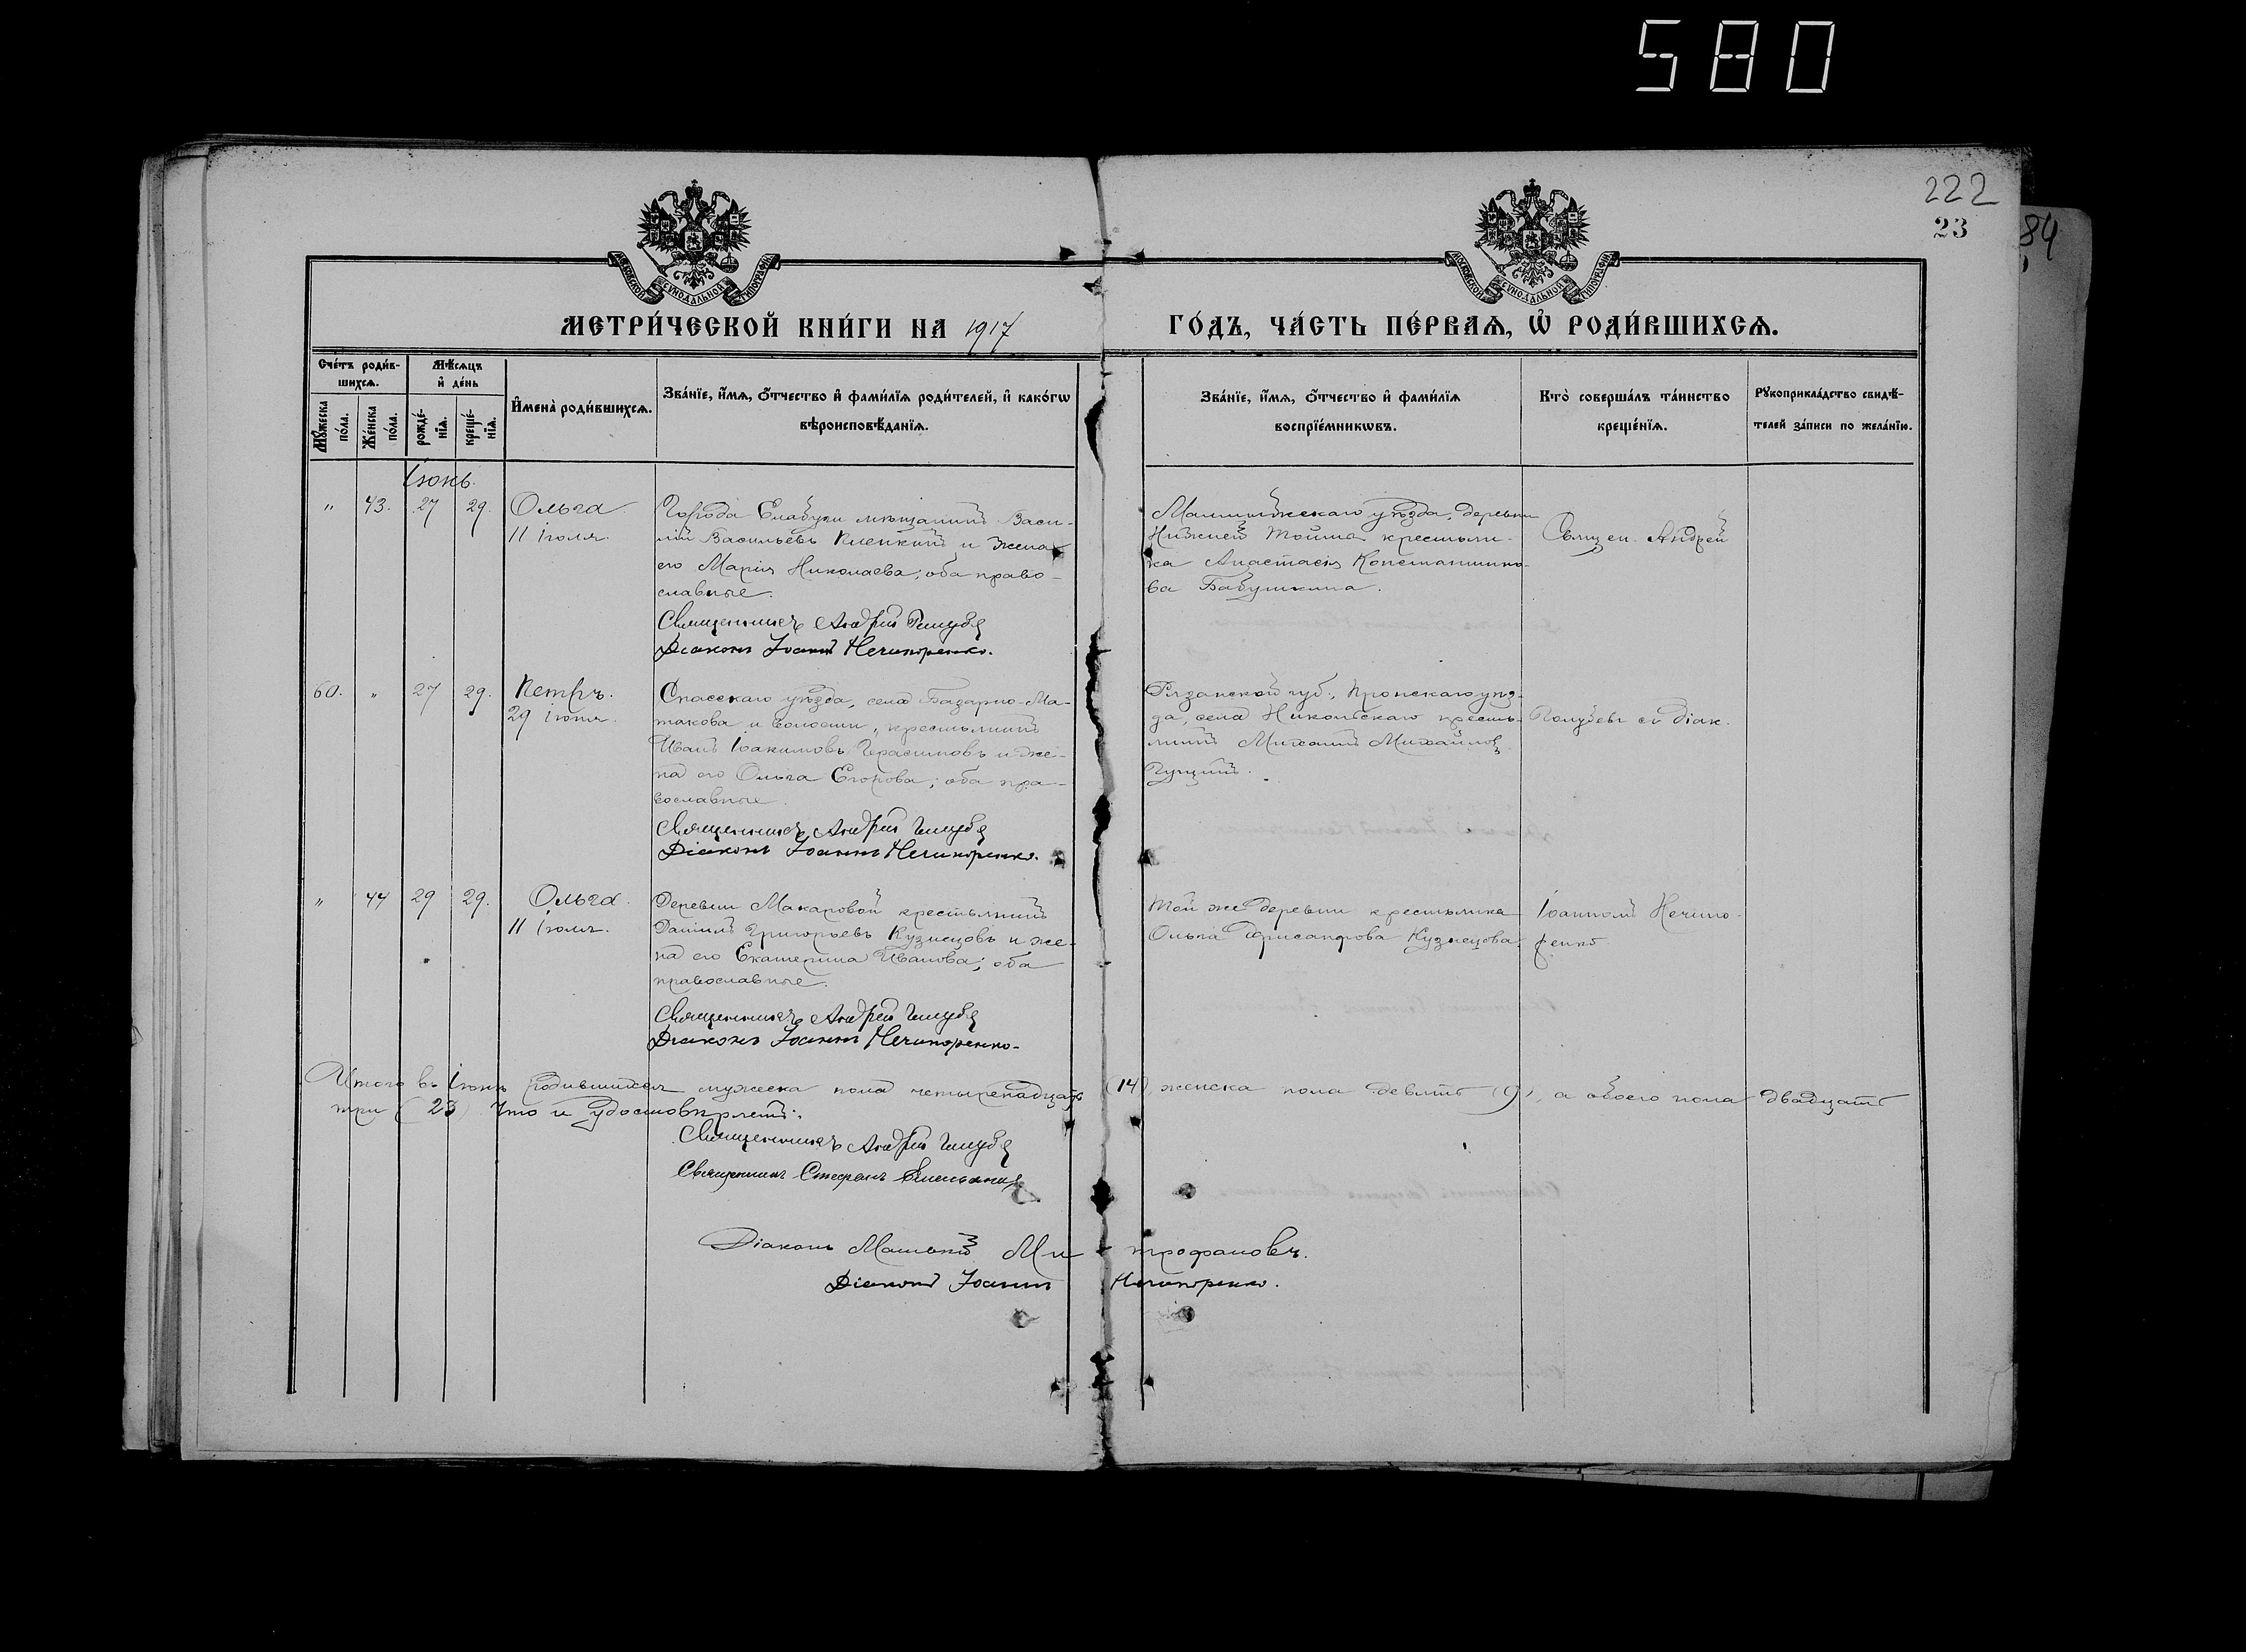 580
222
23
84
МОСКОВСКОЙ СѴНОДАЛЬНОЙ ТИПОГРАФІИ
МОСКОВСКОЙ СѴНОДАЛЬНОЙ ТИПОГРАФІИ
МЕТРИ́ЧЕСКОЙ КНИ́ГИ НА 1917 ГО́ДЪ, ЧА́СТЬ ПЕ́РВАѦ, Ѽ РОДИ́ВШИХСѦ.
Сче́тъ роди́вшихсѧ.
Мѣ́сѧцъ и҆ де́нь
Мꙋ́жеска по́ла.
Же́нска по́ла.
рожде́нїѧ.
креще́нїѧ.
И҆мена̀ роди́вшихсѧ.
Зва́нїе, и҆́мѧ, ѻ҆́тчество и҆ фами́лїѧ роди́телей, и҆ како́гѡ
вѣроисповѣ́данїѧ.
Зва́нїе, и҆́мѧ, ѻ҆́тчество и҆ фами́лїѧ
воспрїе́мникѡвъ.
Кто̀ соверша́лъ та́инство
креще́нїѧ.
Рꙋкоприкла́дство свидѣ́-
телей за́писи по жела́нїю.
Іюнь.
" 43. 27 29. Ольга
11 іюля.
Города Елабуги мѣщанинъ Васи-
лій Васильевъ и жена
его Марія Николаева; оба право-
славные.
Священникъ Андрей
Діаконъ Іоаннъ Нечипоренко.
Малмыжскаго уѣзда, деревни
Нижней Тоймы крестьян-
ка Анастасія Константино-
ва Бабушкина.
Священ. Андрей
60. " 27 29. Петръ.
29 іюня.
Спасскаго уѣзда, села Базарно-Ма-
такова и волости, крестьянинъ
Иванъ Іоакимовъ Герасимовъ и же-
на его Ольга Егорова; оба пра-
вославные.
Священникъ Андрей
Діаконъ Іоаннъ Нечипоренко.
Рязанской губ., Пронскаго уѣз-
да, села Никольскаго кресть-
янинъ Михаилъ Михайловъ
съ діак.
" 44 29 29. Ольга.
11 іюля.
Деревни Макаровой крестьянинъ
Даніилъ Григорьевъ Кузнецовъ и же-
на его Екатерина Иванова; оба
православные.
Священникъ Андрей
Діаконъ Іоаннъ Нечипоренко.
Той же деревни крестьянка
Ольга Хрисанфова Кузнецова.
Іоанномъ Нечипо-
ренко
Итого въ Іюнѣ родившихся мужеска пола четырнадцать (14), женска пола девять (9), а обоего пола двадцать
три (23). Что и удостовѣряемъ:
Священникъ Андрей
Священникъ Стефанъ
Діаконъ Митрофановъ.
Діаконъ Іоаннъ Нечипоренко.